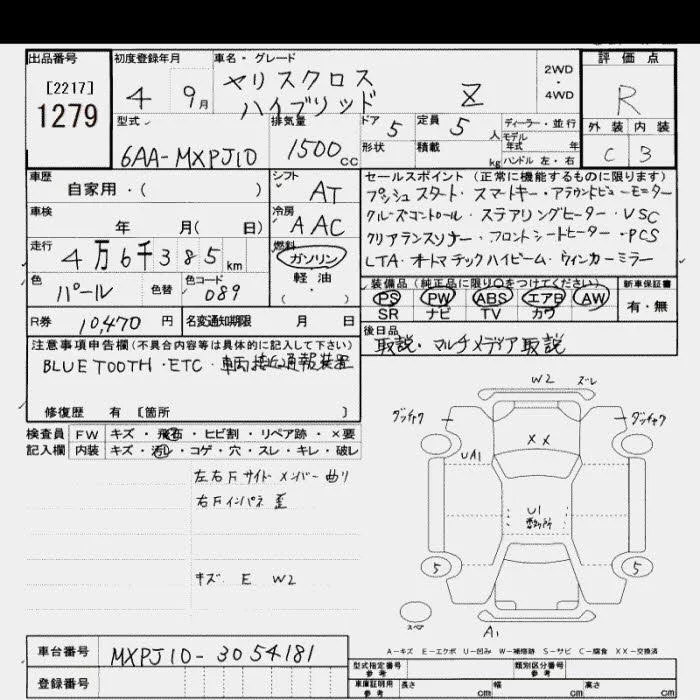 出品番号 初度登録年月 車名・グレード 評価点
[2217]
1279
4 9月 ヤリスクロス ハイブリッド Z 2WD・4WD R
型式 排気量 ドア 定員 ディーラー・並行 外装 内装
6AA-MXPJ10 1500cc 5 5人 モデル年式 年 C 3
形状 積載 kg ハンドル 左・右
車歴 シフト セールスポイント (正常に機能するものに限ります)
自家用・( ) AT プッシュスタート・スマートキー・アラウンドビューモニター
車検 冷房 クルーズコントロール・ステアリングヒーター・VSC
年 月( 日) AAC クリアランスソナー・フロントシートヒーター・PCS
走行 燃料 LTA・オートマチックハイビーム・ウィンカーミラー
4万6千385km ガソリン
色 色替 色コード 軽油 装備品(純正品に限り○をつけてください) 新車保証書
パール 089 ( ) PS PW ABS エアB AW 有・無
SR ナビ TV カワ
R券 10,470円 名変通知期限 月 日 後日品
取説・マルチメディア取説
注意事項申告欄(不具合内容等は具体的に記入して下さい)
BLUETOOTH・ETC・車両接近通報装置
修復歴 有 [箇所 ]
検査員 FW キズ・飛石・ヒビ割・リペア跡・×要
記入欄 内装 キズ・汚レ・コゲ・穴・スレ・キレ・破レ
左右Fサイドメンバー曲り
右Fインパネ歪
キズ E W2
W2 ズレ
ダッチャク ダッチャク
XX
UA1
U1
5 5
スペア
A1
A-キズ E-エクボ U-凹み W-補修跡 S-サビ C-腐食 XX-交換済
車台番号 MXPJ10-3054181
型式指定番号 参考 類別区分番号 参考
登録番号 車庫証明用 参考 長さ cm 幅 cm 高さ cm